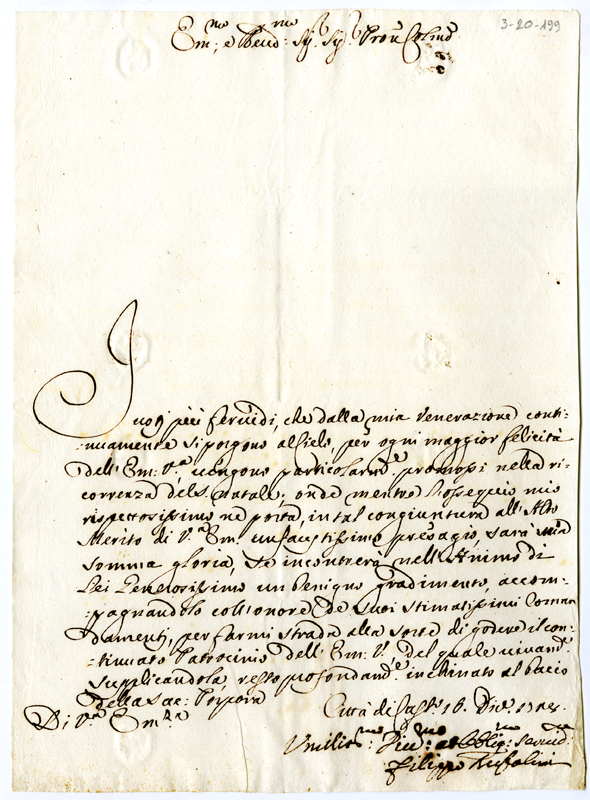 3-20-199
Em:mo e Reud:mo Sig.r Sig.r Pron Colmo
I uoti più feruidi, che dalla mia Venerazione conti-
-nuamente si porgono al Cielo, per ogni maggior felicità
dell' Em: V.a uengono particolarm.te promossi nella ri-
correnza del S. Natale; onde mentre l'ossequio mio
rispettosissimo ne porta, in tal congiuntura all' Alto
Merito di V.a Em: un faustissimo presagio, sarà mia
somma gloria, se incontrerà nell' Animo di
Lei Generosissimo un benigno gradimento, accom-
-pagnandolo coll' onore de Suoi stimatissimi Coman
damenti, per farmi strada alla sorte di godere il con-
-tinuato Patrocinio dell' Em: V.a del quale uiuam.te
supplicandola resto profondam.te inchinato al bacio
della Sac: Porpora
Città di Cast.o 16. Dic.e
Di V.ra Em.za
Umilis:mo Diu:mo ed Oblig:mo Seruid.re
Filippo